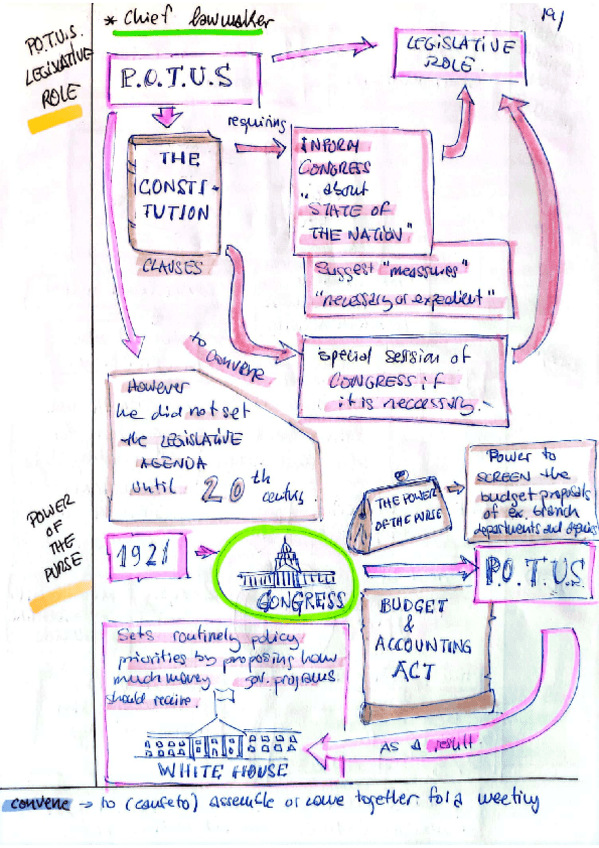 * Chief lawmaker
19/
P.O.T.U.S.
LEGISLATIVE
ROLE
P.O.T.U.S
LEGISLATIVE
ROLE.
requiring
THE
CONSTI-
TUTION
CLAUSES
INFORM
CONGRESS
"about
STATE OF
THE NATION"
Suggest "measures"
"necessary or expedient"
to CONVENE
special session of
CONGRESS if
it is neccessary.
However
he did not set
the LEGISLATIVE
AGENDA
until 20th century
POWER
OF
THE
PURSE
THE POWER
OF THE PURSE
Power to
SCREEN the
budget proposals
of ex. branch
departments and
1921
CONGRESS
P.O.T.U.S
BUDGET
&
ACCOUNTING
ACT
Sets routinely policy
priorities by proposing how
much money gov. programs
should receive.
AS A result.
WHITE HOUSE
convene → to (cause to) assemble or come together for a meeting